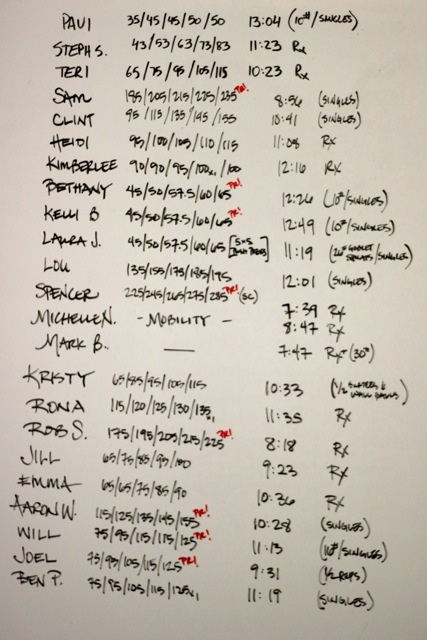 PAUL 35/45/45/50/50 13:04 (10#/SINGLES)
STEPH S. 43/53/63/73/83 11:23 Rx
TERI 65/75/95/105/115 10:23 Rx
SAM 195/205/215/225/235 PR! 8:56 (SINGLES)
CLINT 95/115/135/145/155 10:41 (SINGLES)
HEIDI 95/100/105/110/115 11:08 RX
KIMBERLEE 90/90/95/100/100 12:16 RX
BETHANY 45/50/57.5/60/65 PR! 12:26 (10#/SINGLES)
KELLI B 45/50/57.5/60/65 PR! 12:49 (10#/SINGLES)
LAURA J. 45/50/57.5/60/65 [5x5 PUSH PRESS] 11:19 (26# GOBLET SQUATS/SINGLES)
LOU 135/155/175/185/195 12:01 (SINGLES)
SPENCER 225/245/265/275/285 PR! (SC) 7:39 RX
MICHELLE N. - MOBILITY - 8:47 RX
MARK B. — 7:47 RX+ (30#)
KRISTY 65/85/95/105/115 10:33
RONA 115/120/125/130/135 11:35 RX
ROB S. 175/195/205/215/225 PR! 8:18 RX
JILL 65/75/85/95/100 9:23 RX
EMMA 65/65/75/85/90 10:36 RX
AARON W. 115/125/135/145/155 PR! 10:28 (SINGLES)
WILL 75/95/115/115/125 PR! 11:13 (10#/SINGLES)
JOEL 75/95/105/115/125 PR! 9:31 (1/2 REPS)
BEN P. 75/95/105/115/125 11:19 (SINGLES)